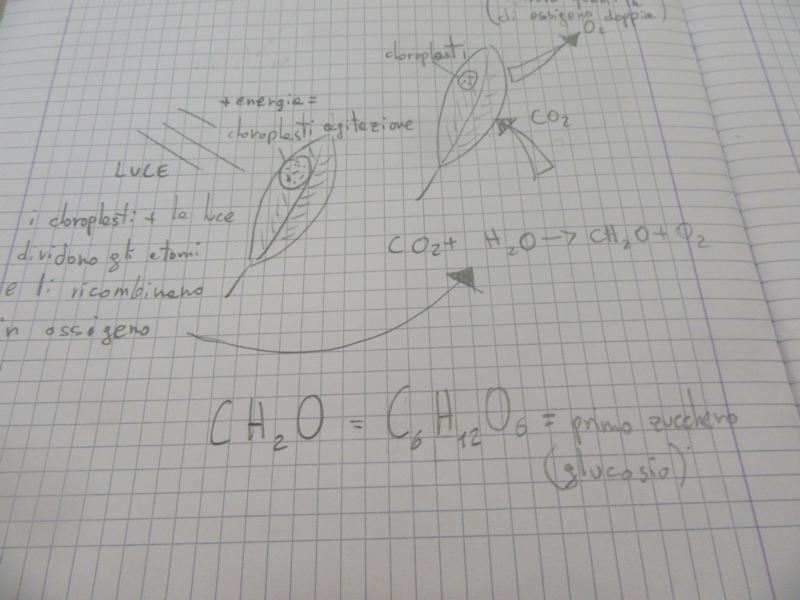 di ossigeno doppia)
O2
cloroplasti
CO2
+ energia =
cloroplasti agitazione
LUCE
i cloroplasti + la luce
dividono gli atomi
e li ricombinano
in ossigeno
CO2 + H2O → CH2O + O2
CH2O = C6H12O6 = primo zucchero
(glucosio)